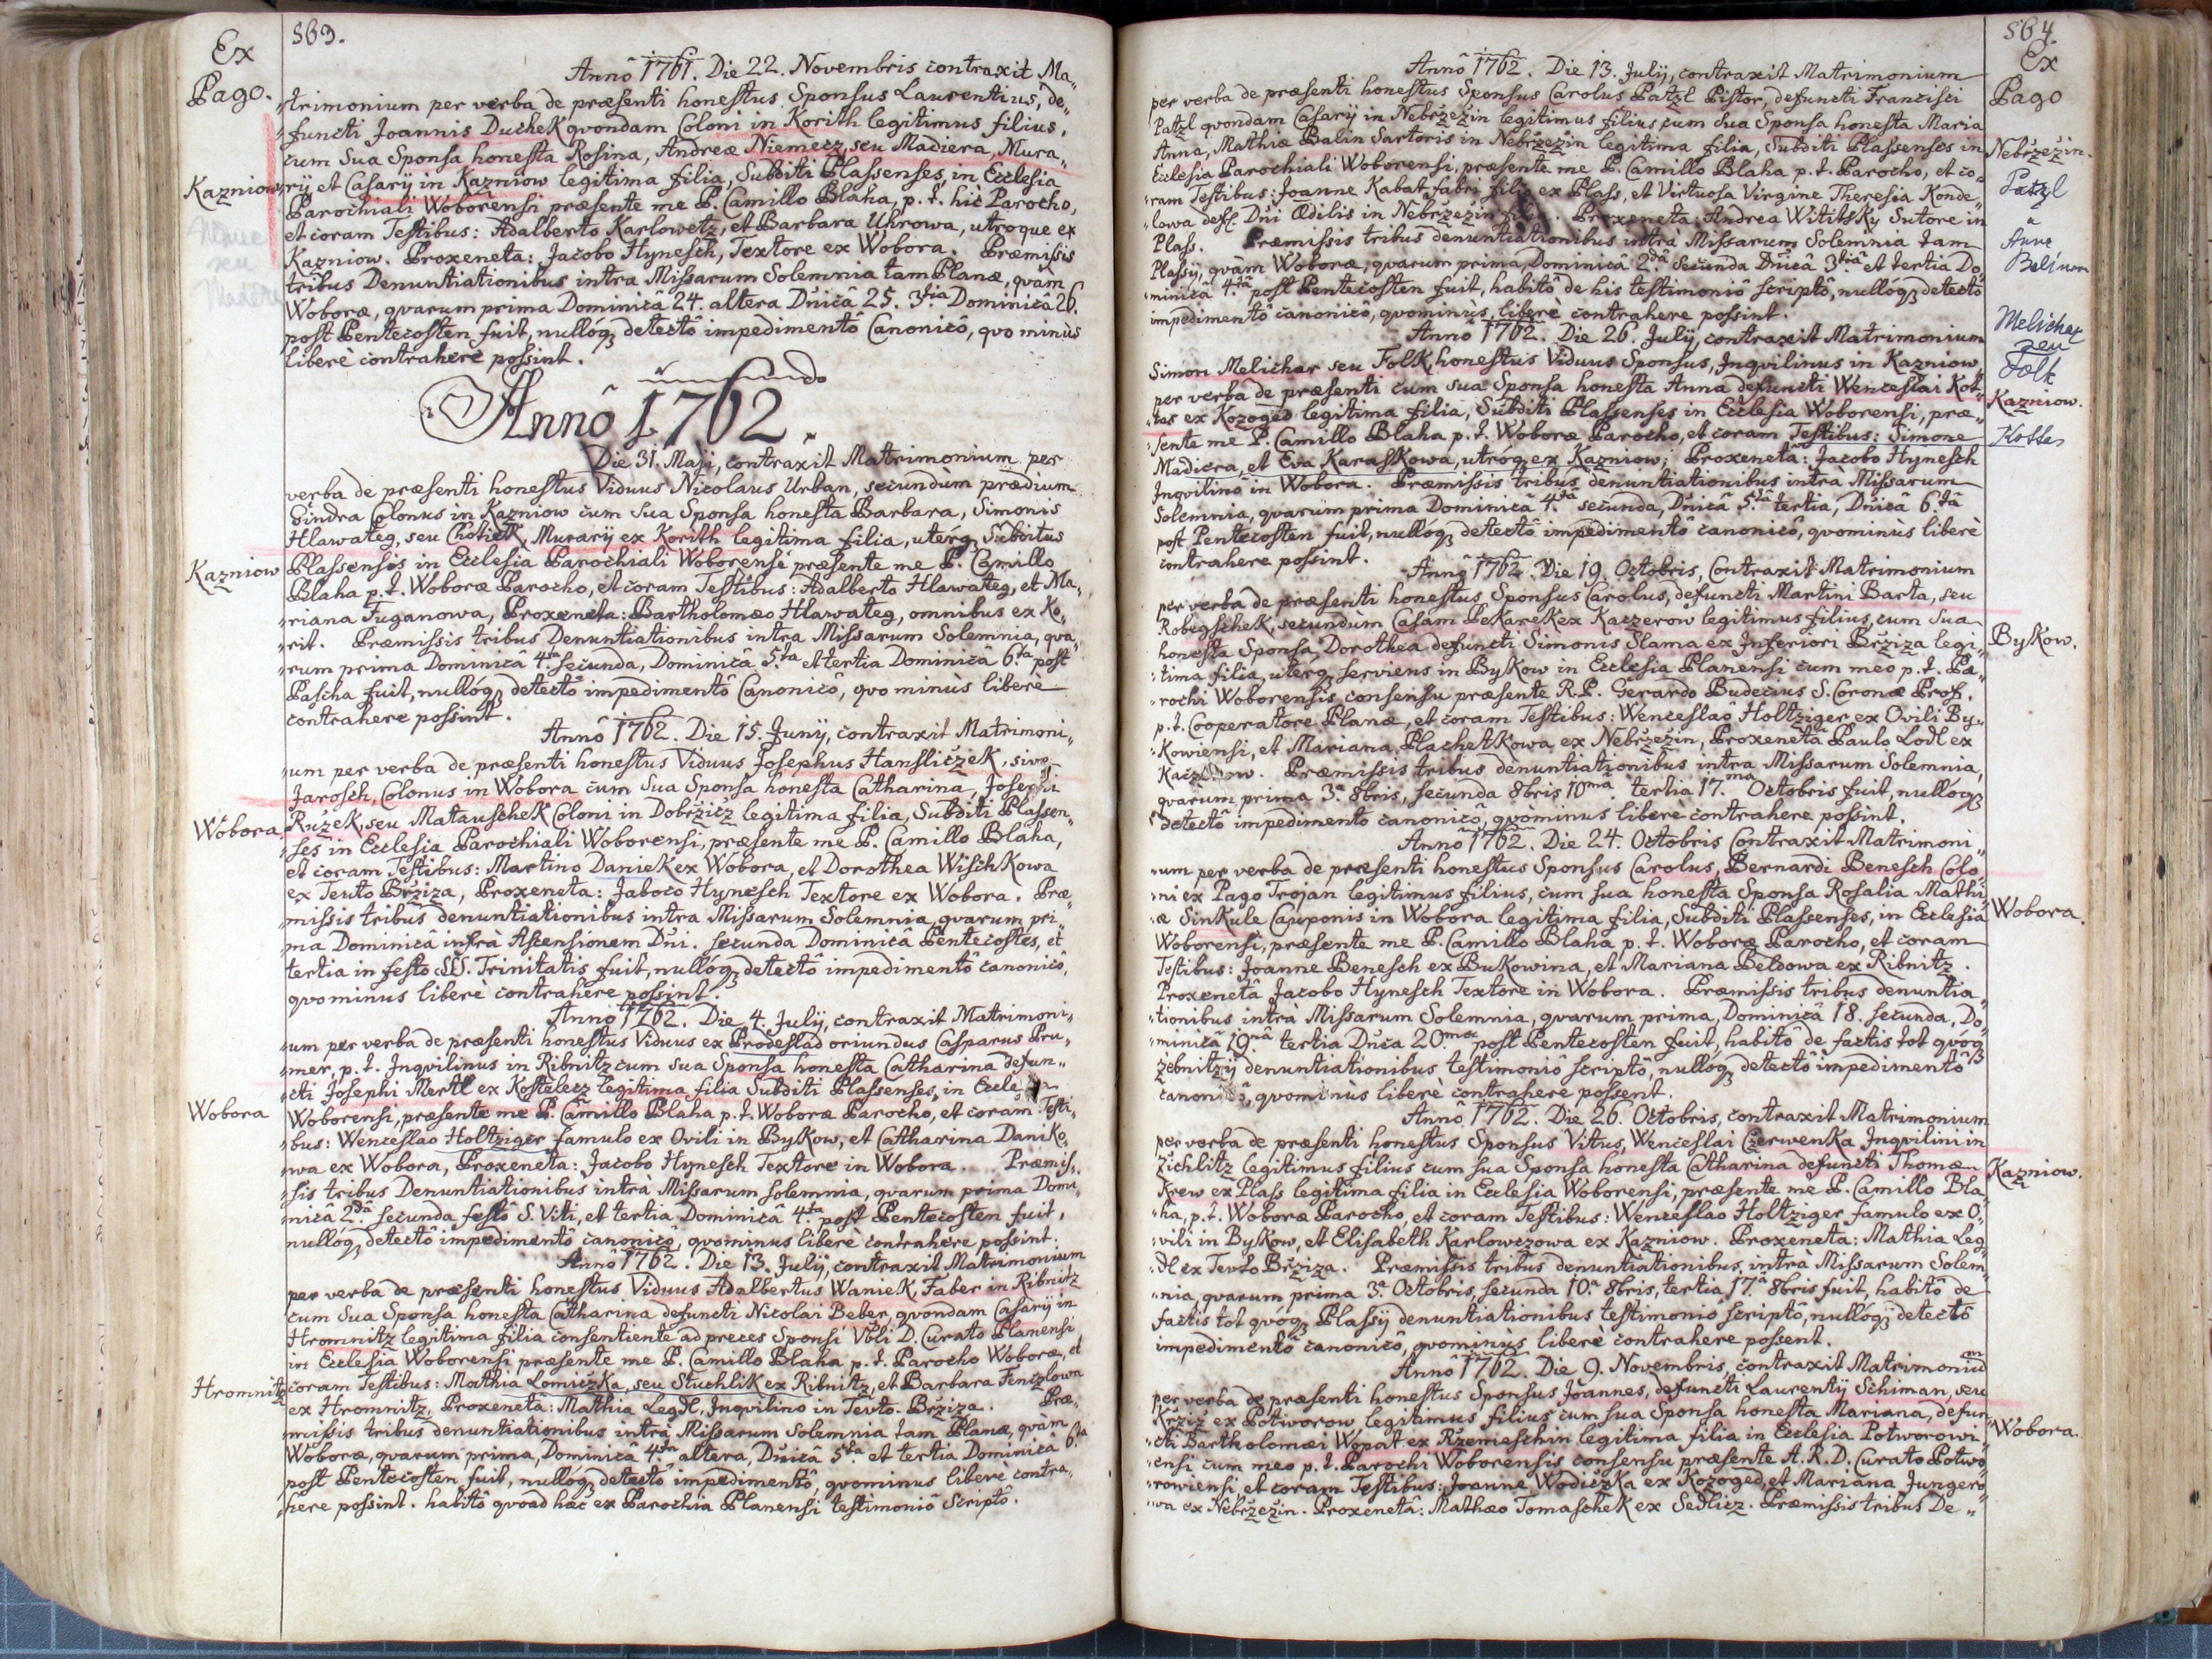 Ex
Pago.
563.
Annô 1761. Die 22. Novembris contraxit Ma„
„trimonium per verba de præsenti honestus Sponsus Laurentius, de„
„functi Joannis Duchek qvondam Coloni in Korith legitimus filius,
cum Sua Sponsa honesta Rosina, Andreæ Niemecz, seu Madiera, Mura„
Kazniow
„rij et Casarij in Kazniow legitima filia, Subditi Plassenses, in Ecclesia
Parochiali Woborensi præsente me P. Camillo Blaha, p. t. hic Parocho,
et coram Testibus: Adalberto Karlowetz, et Barbara Uhrowa, utroque ex
Kazniow. Proxeneta: Jacobo Hynesch, Textore ex Wobora. Præmissis
tribus Denuntiationibus intra Missarum Solemnia tam Planæ, qvàm
Woboræ, qvarum prima Dominicâ 24. altera Dnicâ 25. 3tia Dominicâ 26.
post Pentecosten fuit, nullóq detectô impedimentô Canonicô, quo minùs
liberè contrahere possint.
Annô 1762.
Die 31. Maji, contraxit Matrimonium per
verba de præsenti honestus Viduus Nicolaus Urban, secundùm prædium
Sindra Colonus in Kazniow cum Sua Sponsa honesta Barbara, Simonis
Hlawateg, seu Chotiek, Murarij ex Korith legitima filia, utérq Subditus
Kazniow
Plassensis in Ecclesia Parochiali Woborensi præsente me P. Camillo
Blaha p. t. Woboræ Parocho, et coram Testibus: Adalberto Hlawateg, et Ma„
„riana Tuganowa, Proxeneta: Bartholomæo Hlawateg, omnibus ex Ko„
„rit. Præmissis tribus Denuntiationibus intra Missarum Solemnia, qva„
„rum prima Dominicâ 4.ta secunda, Dominicâ 5.ta et tertia Dominicâ 6.ta post
Pascha fuit, nullóq detectô impedimentô Canonicô, quo minùs liberè
contrahere possint.
Annô 1762. Die 15. Junij, contraxit Matrimoni„
„um per verba de præsenti honestus Viduus Josephus Hansliczek, sive
Jarosch, Colonus in Wobora cum Sua Sponsa honesta Catharina, Josephi
Wobora.
Ružek, seu Matauschek Coloni in Dobržicz legitima filia, Subditi Plassen„
„ses in Ecclesia Parochiali Woborensi, præsente me P. Camillo Blaha,
et coram Testibus: Martino Daniek ex Wobora, et Dorothea Wischkowa
ex Teuto Bržiza, Proxeneta: Jaboco Hynesch Textore ex Wobora. Præ„
„missis tribus denuntiationibus intra Missarum Solemnia, qvarum pri„
„ma Dominicâ infrà Ascensionem Dni. secunda Dominicâ Pentecostes, et
tertia in festo SSS. Trinitatis fuit, nullóq detectô impedimentô canonicô,
qvominus liberè contrahere possint.
Annô 1762. Die 4. Julij, contraxit Matrimoni„
„um per verba de præsenti honestus Viduus ex Prodeslad oriundus Casparus Pru„
„mer, p. t. Inqvilinus in Ribnitz cum sua Sponsa honesta Catharina defun„
„cti Josephi Mertl ex Kostelecz legitima filia Subditi Plassenses, in Eccle
Wobora
Woborensi, præsente me P. Camillo Blaha p. t. Woboræ Parocho, et coram Testi„
„bus: Wenceslao Holtziger famulo ex Ovili in Bykow, et Catharina Daniko„
„wa ex Wobora, Proxeneta: Jacobo Hynesch Textore in Wobora. Præmis„
„sis tribus Denuntiationibus intrà Missarum solemnia, qvarum prima Domi„
„nicâ 2.dâ secunda festô S. Viti, et tertia Dominicâ 4.ta post Pentecosten fuit,
nullóq detectô impedimentô canonicô, qvominus liberè contrahere possint.
Annô 1762. Die 13. Julij, contraxit Matrimonium
per verba de præsenti honestus Viduus Adalbertus Waniek, Faber in Ribnitz
cum Sua Sponsa honesta Catharina defuncti Nicolai Beber, qvondam Casarij in
Hromnitz legitima filia consentiente ad preces Sponsi Vbli D. Curato Planensi
in Ecclesia Woborensi præsente me P. Camillo Blaha p. t. Parocho Woboræ, et
Hromnitz
coram Testibus: Mathia Lomiczka, seu Stuchlik ex Ribnitz, et Barbara Fenczlowa
ex Hromnitz, Proxeneta: Mathia Legdl, Inqvilino in Teuto-Bržiza. Præ„
„missis tribus denuntiationibus intrà Missarum Solemnia tam Planæ, qvàm
Woboræ, qvarum prima, Dominicâ 4.ta altera, Dnicâ 5ta et tertia Dominicâ 6.ta
post Pentecosten fuit, nullóq detectô impedimentô, qvominus liberè contra„
„here possint. habitô qvoad hæc ex Parochia Planensi testimoniô Scriptô.
564.
Ex
Pago
Annô 1762. Die 13. Julij, contraxit Matrimonium
per verba de præsenti honestus Sponsus Carolus Patzl Pistor, defuncti Francisci
Patzl qvondam Casarij in Nebržežin legitimus filius, cum Sua Sponsa honesta Maria
Anna, Mathiæ Balin Sartoris in Nebržežin legitima filia, Subditi Plassenses in
Nebržežin.
Ecclesia Parochiali Woborensi, præsente me P. Camillo Blaha p. t. Parocho, et co„
Patzl
„ram Testibus: Joanne Kabat, fabri filio ex Plass, et Virtuosa Virgine Theresia Konde„
„lowa def. Dni Ædilis in Nebržežin filia. Proxeneta: Andrea Wititsky Sutore in
Plass. Præmissis tribus denuntiationibus intrà Missarum Solemnia tam
Plassij, qvàm Woboræ, qvarum prima, Dominicâ 2.dâ secunda Dnicâ 3.tiâ et tertia Do„
„minicâ 4.ta post Pentecosten fuit, habitô de his testimoniô scriptô, nullóq detectô
impedimentô canonicô, qvominùs liberè contrahere possint.
Annô 1762. Die 26. Julij, contraxit Matrimonium
Melichar
seu
Folk
Simon Melichar seu Folk, honestus Viduus Sponsus, Inqvilinus in Kazniow
per verba de præsenti cum sua Sponsa honesta Anna defuncti Wenceslai Kot„
Kazniow.
„ter ex Kozoged legitima filia, Subditi Plassenses in Ecclesia Woborensi, præ„
Kotter
„sente me P. Camillo Blaha p. t. Woboræ Parocho, et coram Testibus: Simone
Madiera, et Eva Karaskowa, utróq ex Kazniow; Proxenetâ: Jacobo Hynesch
Inqvilinô in Wobora. Præmissis tribus denuntiationibus intrà Missarum
Solemnia, qvarum prima Dominicâ 4.ta secunda, Dnicâ 5.ta tertia, Dnicâ 6.ta
post Pentecosten fuit, nullóq detectô impedimentô canonicô, qvominùs liberè
contrahere possint.
Annô 1762. Die 19. Octobris, Contraxit Matrimonium
per verba de præsenti honestus Sponsus Carolus, defuncti Martini Barta, seu
Robegschek, secundùm Casam Pekarek ex Kaczerow legitimus filius, cum sua
Bykow.
honesta Sponsa, Dorothea defuncti Simonis Slama ex Inferiori Bržiza legi„
„tima filia, uterq serviens in Bykow in Ecclesia Planensi cum meo p. t. Pa„
„rochi Woborensis consensu præsente R. P. Gerardo Budecius S. Coronæ Prof.
p. t. Cooperatore Planæ, et coram Testibus: Wenceslaô Holtziger ex Ovili By„
„kowiensi, et Mariana Plachetkowa ex Nebržežin, Proxenetâ Paulo Lodl ex
Præmissis tribus denuntiationibus intra Missarum Solemnia,
qvarum prima 3.a 8bris, secunda 8bris 10ma tertia 17.ma Octobris fuit, nullóq
detectô impedimento canonicô, qvòminus liberè contrahere possint.
Annô 1762. Die 24. Octobris Contraxit Matrimoni„
„um per verba de præsenti honestus Sponsus Carolus, Bernardi Benesch Colo„
„ni ex Pago Trojan legitimus filius, cum sua honesta Sponsa Rosalia Mathi„
Wobora.
„æ Sinkule Cauponis in Wobora legitima filia, Subditi Plassenses, in Ecclesia
Woborensi, præsente me P. Camillo Blaha p. t. Woboræ Parocho, et coram
Testibus: Joanne Benesch ex Bukowina, et Mariana Belsowa ex Ribnitz.
Proxenetâ Jacobo Hynesch Textore in Wobora. Præmissis tribus denuntia„
„tionibus intrà Missarum Solemnia, qvarum prima, Dominica 18. secunda, Do„
„minicâ 19.nâ tertia Dnca 20ma post Pentecosten fuit, habitô de factis tot qvóq
žebnitzij denuntiationibus testimoniô scriptô, nullóq detectô impedimentô
qvominùs liberè contrahere possent.
Annô 1762. Die 26. Octobris, contraxit Matrimonium
per verba de præsenti honestus Sponsus Vitus, Wenceslai Czerwenka Inqvilini in
Zichlitz legitimus filius cum sua Sponsa honesta Catharina defuncti Thomæ
Kazniow.
Krew ex Plass legitima filia in Ecclesia Woborensi, præsente me P. Camillo Bla„
„ha, p. t. Woboræ Parocho, et coram Testibus: Wenceslao Holtziger famulo ex O„
„vili in Bykow, et Elisabeth Karlowczowa ex Kazniow. Proxeneta: Mathia Leg„
„dl ex Teuto Bržiza. Præmissis tribus denuntiationibus intrà Missarum Solem„
„nia, qvarum prima 3.a Octobris, secunda 10.a 8bris, tertia 17.a 8bris fuit, habitô de
factis tot qvóq Plassij denuntiationibus testimoniô scriptô, nullóq detectô
impedimentô canonicô, qvominùs liberè contrahere possent.
Annô 1762. Die 9. Novembris, contraxit Matrimoniũ
per verba de præsenti honestus Sponsus Joannes, defuncti Laurentij Schiman, seu
Krziz ex Potworow legitimus filius cum sua Sponsa honesta Mariana, defun„
Wobora.
„cti Bartholomæi Wopat ex Rzemeschin legitima filia in Ecclesia Potworowi„
„ensi cum meo p. t. Parochi Woborensis consensu præsente A. R. D. Curato Potwo„
„rowiensi et coram Testibus: Joanne Wodiczka ex Kozoged, et Mariana Jungero„
„wa ex Nebržežin. Proxenetâ: Mathæo Tomaschek ex Sedlicz. Præmissis tribus De„